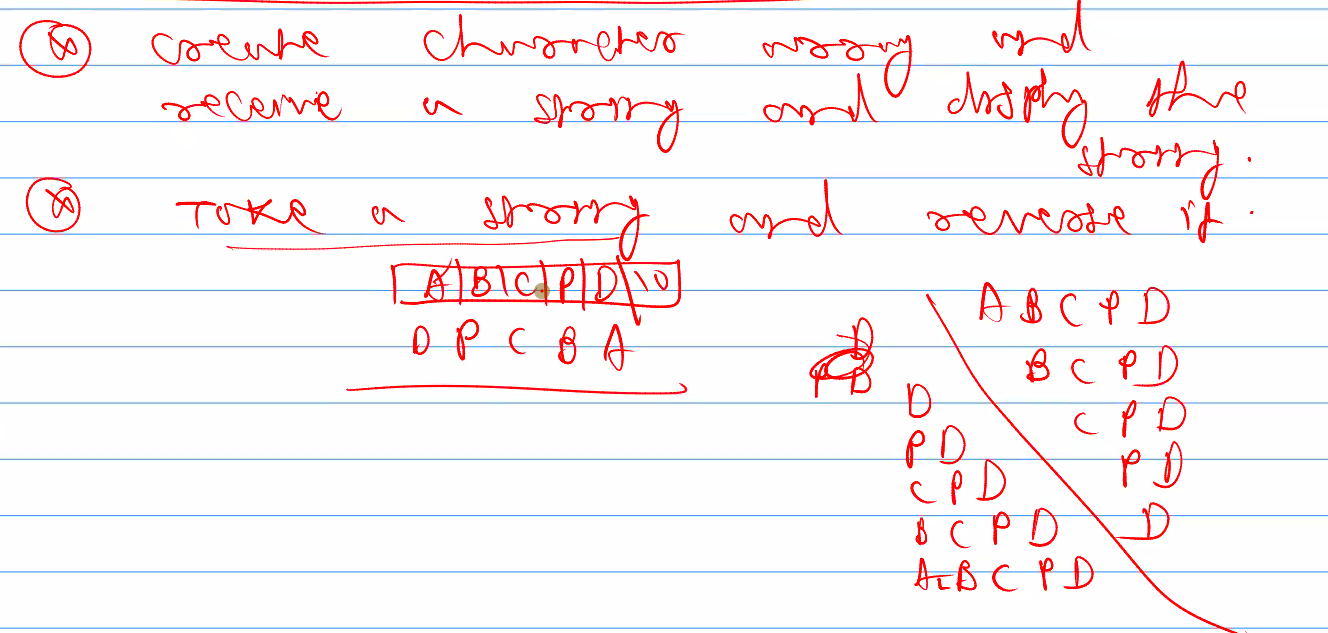 create character array and
receive a string and display the
string.
Take a string and reverse it.
A B C P D \0
D P C B A
A B C P D
B C P D
C P D
P D
D
D
P D
C P D
B C P D
A B C P D